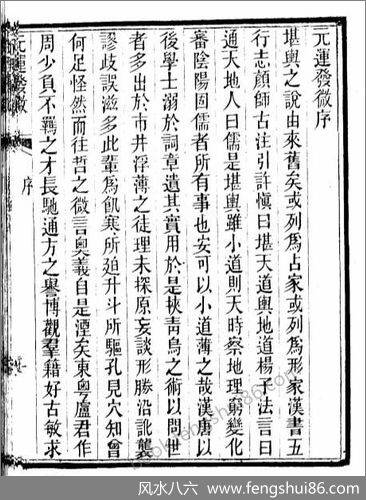 元運發微序
堪輿之說由來舊矣或列爲占家或列爲形家漢書五
行志顏師古注引許愼曰堪天道輿地道楊子法言曰
通天地人曰儒是堪輿雖小道則天時察地理窮變化
審陰陽固儒者所有事也安可以小道薄之哉漢唐以
後學士溺於詞章遺其實用於是挾靑烏之術以問世
者多出於市井浮薄之徒理未探原妄談形勝沿訛襲
謬歧誤滋多此輩爲飢寒所迫升斗所驅孔見穴知曾
何足怪然而往哲之微言奧義自是湮矣東粤盧君作
周少負不羈之才長馳通方之譽博觀羣籍好古敏求
元運發微
序
风水八六
www.fengshui86.com